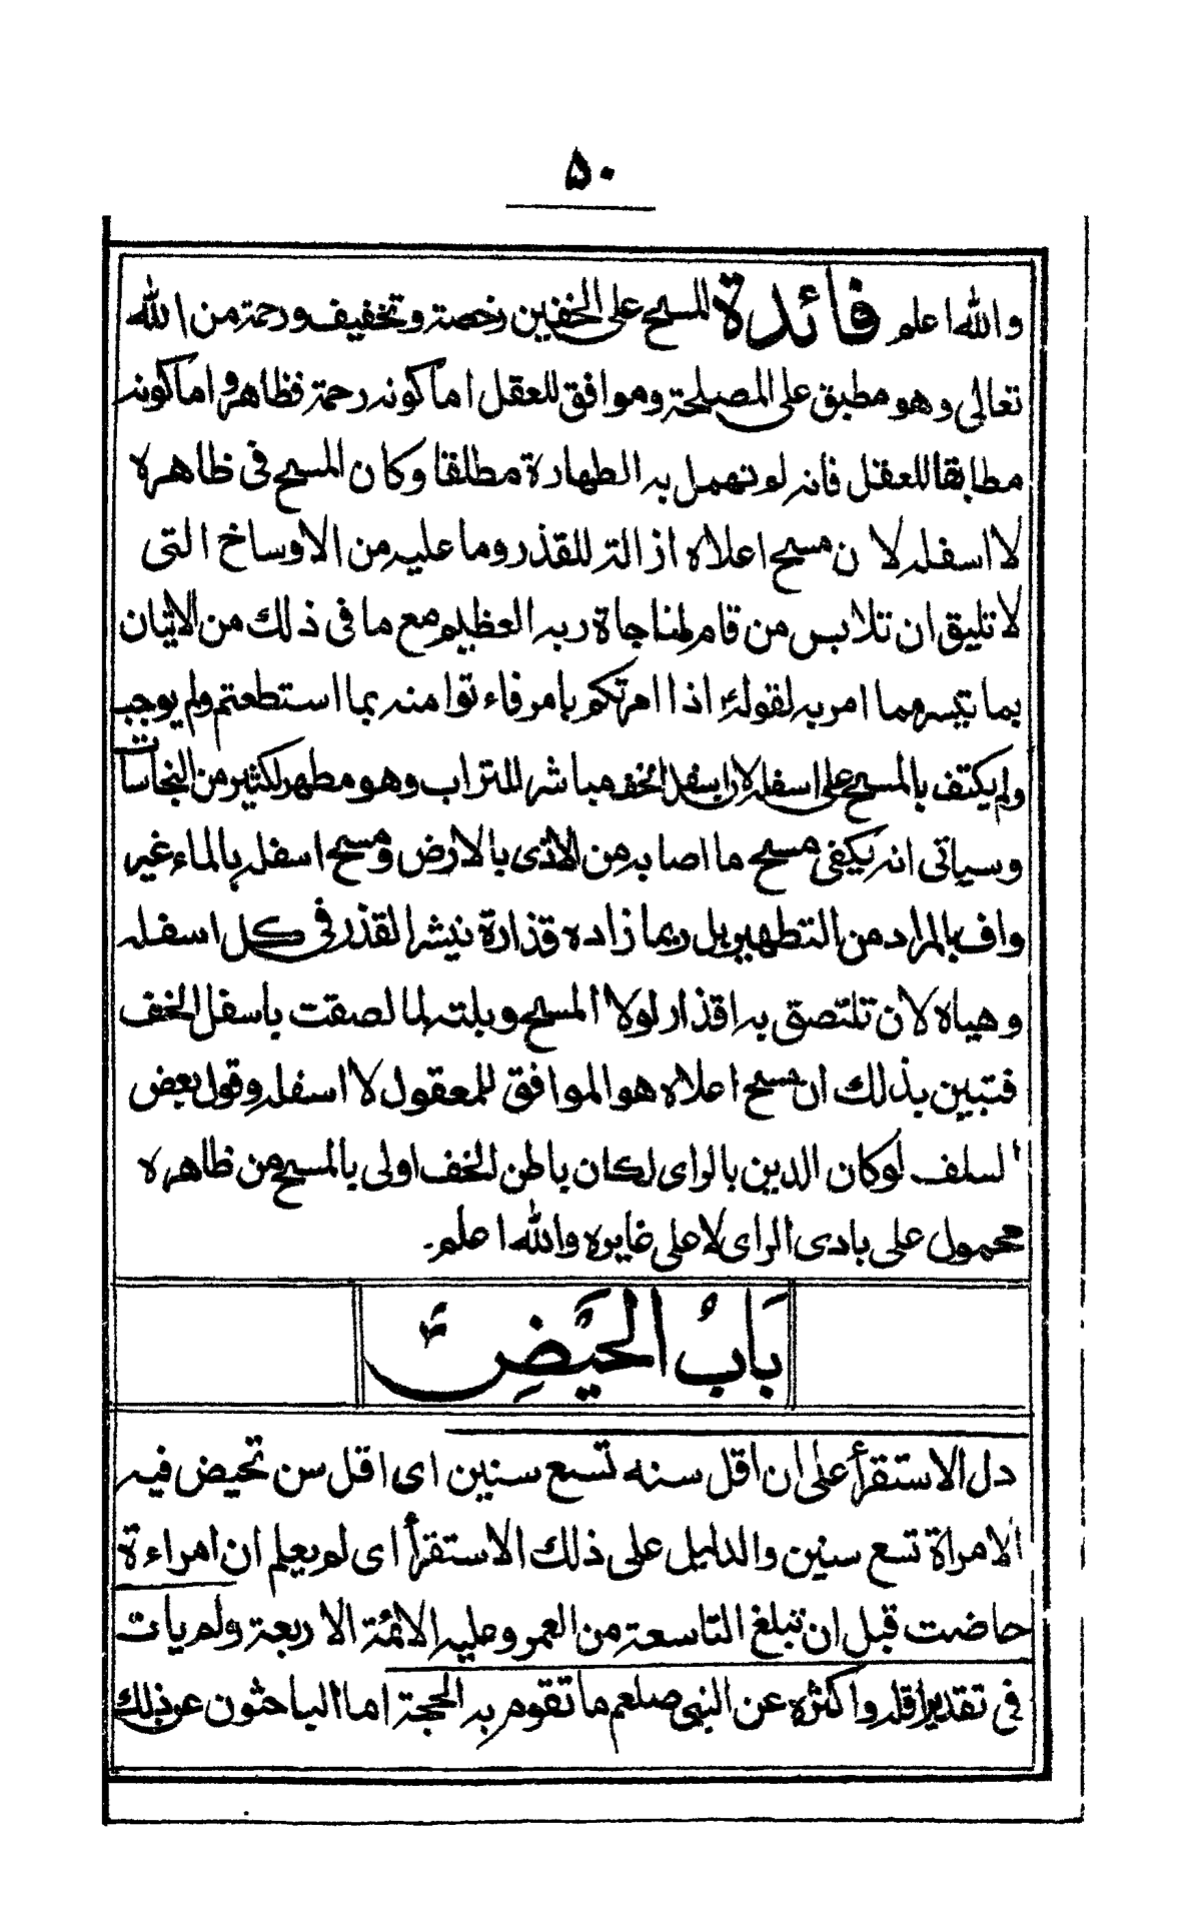 ۵۰
والله اعلم فائدة المسح على الخفين رخصة وتخفيف ورحمة من الله
تعالى وهو مطبق على المصلحة وموافق للعقل اما كونه رحمة فظاهر واما كونه
مطابقا للعقل فانه لو تهمل به الطهارة مطلقا وكان المسح فى ظاهره
لا اسفله لان مسح اعلاه ازالة للقذر وما عليه من الاوساخ التى
لا تليق ان تلابس من قام لمناجاة ربه العظيم مع ما فى ذلك من الاتيان
بما تيسر مما امر به لقوله اذا امرتكم بامر فاءتوا منه بما استطعتم ولم يوجب
ولم يكتف بالمسح على اسفله لان اسفل الخف مباشر للتراب وهو مطهر لكثير من النجاسات
وسياتى انه يكفى مسح ما اصابه من الاذى بالارض ومسح اسفله بالماء غير
واف بالمراد من التطهير بل ربما زاده قذارة بنشر القذر فى كل اسفله
وهياه لان تلتصق به اقذار لولا المسح وبلته لما لصقت باسفل الخف
فتبين بذلك ان مسح اعلاه هو الموافق للمعقول لا اسفله وقول بعض
السلف لو كان الدين بالراى لكان باطن الخف اولى بالمسح من ظاهره
محمول على بادى الراى لا على غايره والله اعلم.
بَابُ الحَيَضِ
دل الاستقرأ على ان اقل سنه تسع سنين اى اقل سن تحيض فيه
الامراة تسع سنين والدليل على ذلك الاستقرأ اى لو يعلم ان امراءة
حاضت قبل ان تبلغ التاسعة من العمر وعليه الائمة الاربعة ولم يات
فى تقدير اقله واكثره عن النبى صلعم ما تقوم به الحجة اما الباحثون عن ذلك